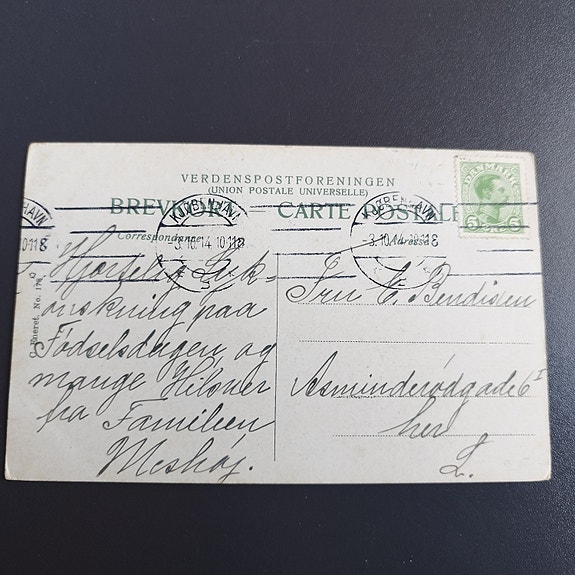 VERDENSPOSTFORENINGEN
(UNION POSTALE UNIVERSELLE)
BREVKORT — CARTE POSTALE
Correspondance
Adresse
KJØBENHAVN
3.10.14. 10-11 F
KJØBENHAVN
3.10.14. 10-11 F
HAVN
DANMARK
5 5
Eneret. No.
Hjertelig Lyk-
ønskning paa
Fødselsdagen og
mange Hilsner
fra Familien
Meshøj.
Fru E. Bendixen
Asminderødgade 6 I
her
L.